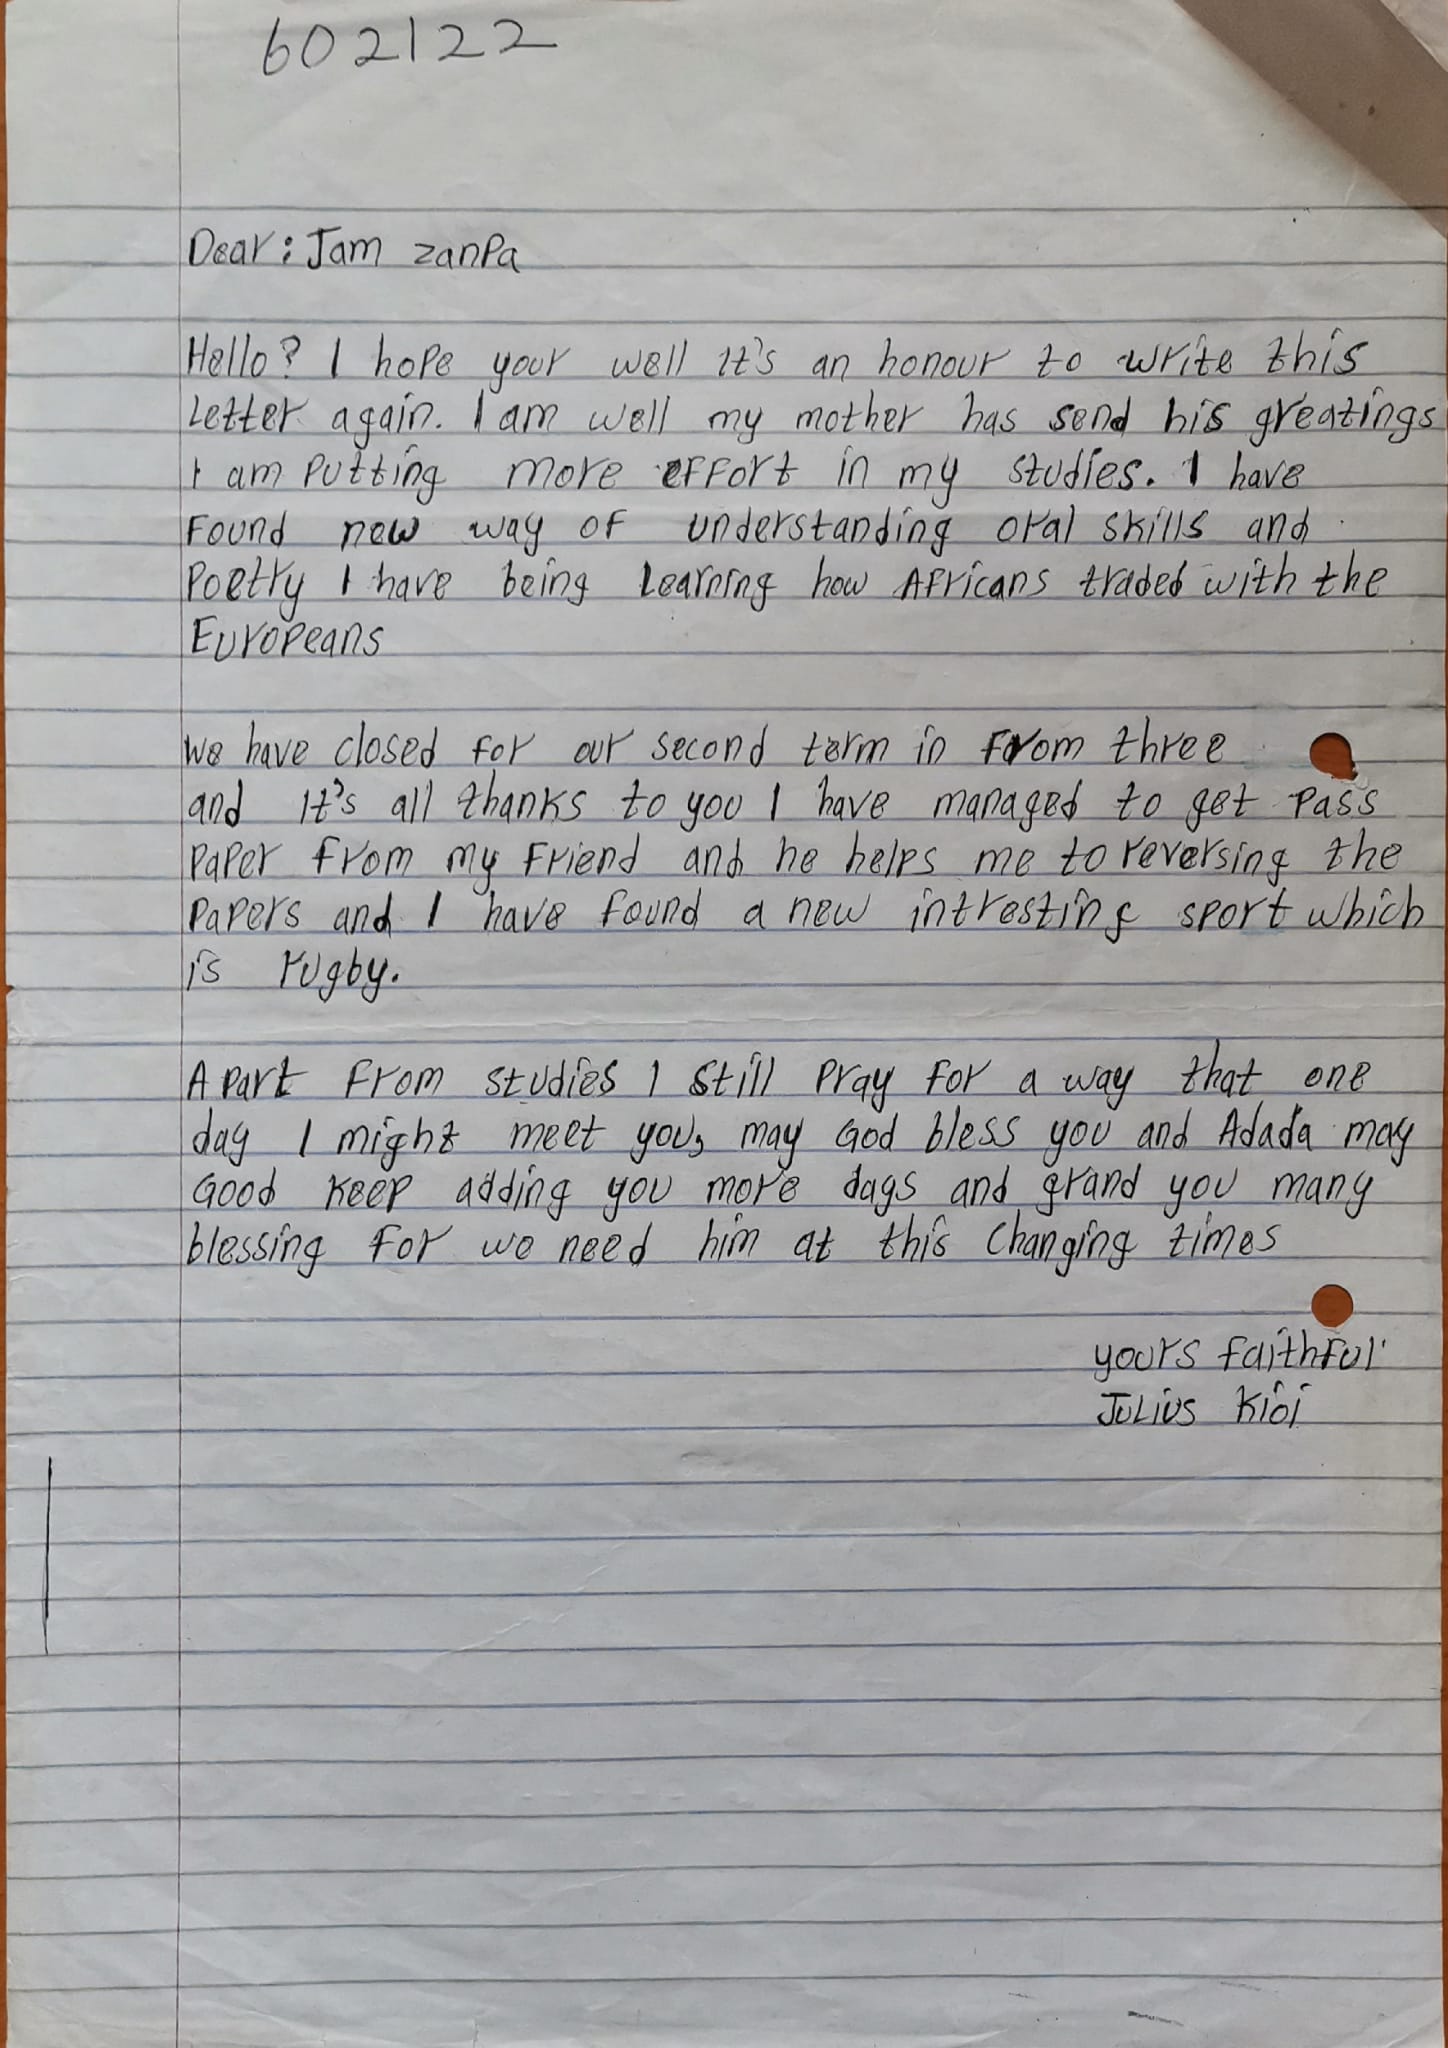 602122
Dear: Jam zanpa
Hello? I hope your well It's an honour to write this
Letter again. I am well my mother has send his greatings
I am putting more effort in my studies. I have
Found new way of understanding oral skills and
Poetry I have being Learning how Africans traded with the
Europeans
We have closed for our second term in From three
and It's all thanks to you I have managed to get pass
paper from my friend and he helps me to reversing the
papers and I have found a new intresting sport which
is rugby.
A part from studies I still pray for a way that one
day I might meet you, may God bless you and Adada may
Good keep adding you more days and grand you many
blessing for we need him at this changing times
yours faithful
Julius Kioi